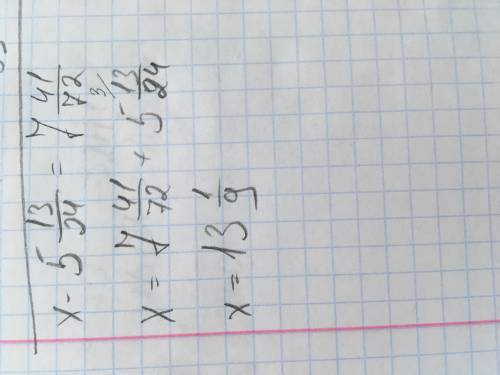 x - 5 13/24 = 7 41/72
x = 7 41/72 + 5 13/24 3/
x = 13 1/9